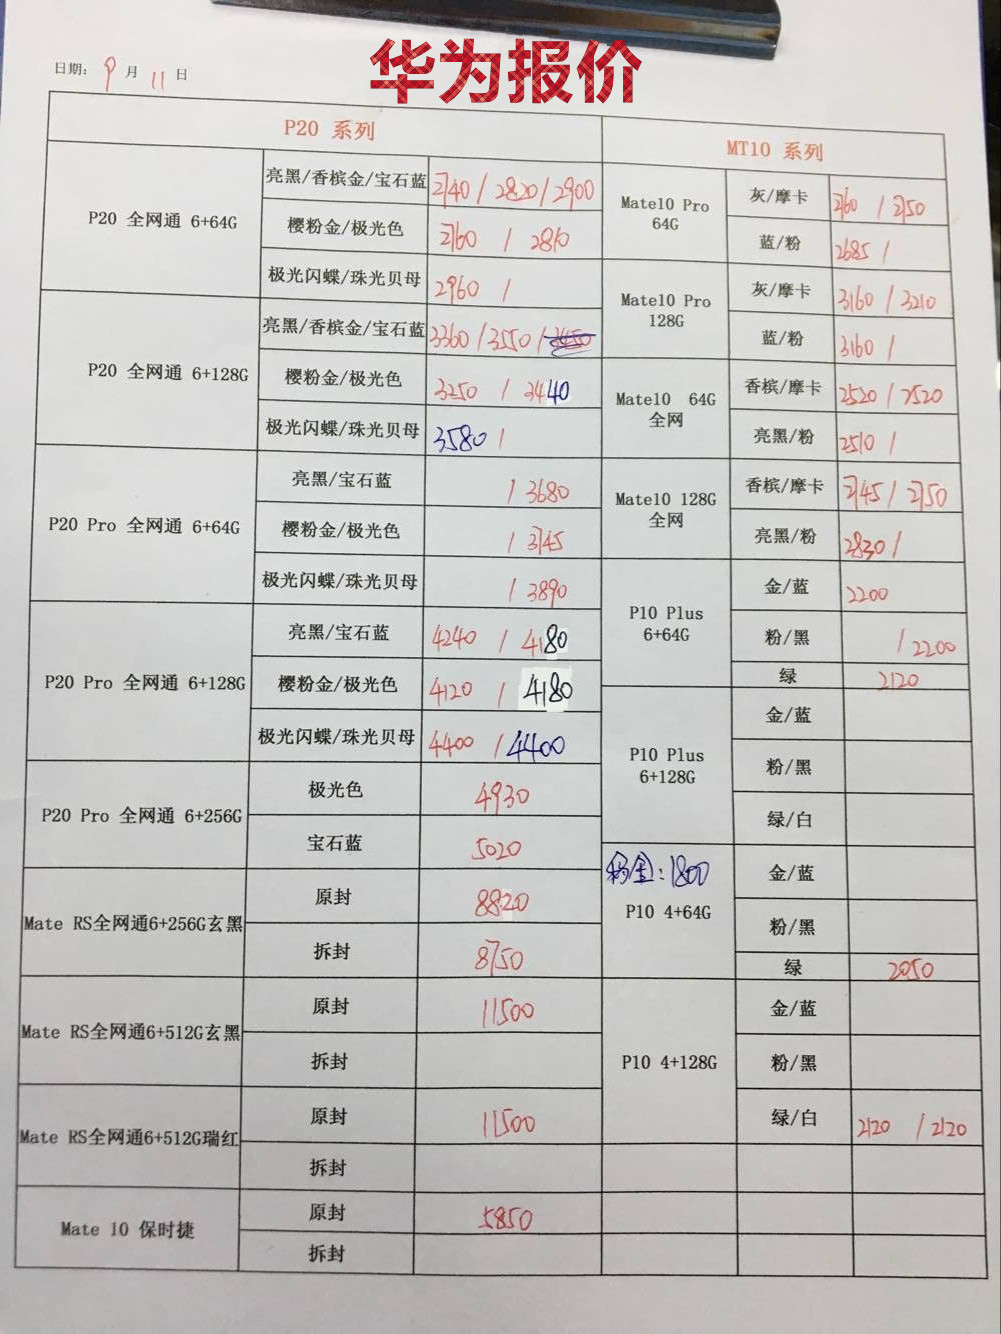 华为报价
日期: 9 月 11 日
P20 系列
P20 全网通 6+64G
亮黑/香槟金/宝石蓝 2740 / 2820 / 2900
樱粉金/极光色 2760 / 2810
极光闪蝶/珠光贝母 2960 /
P20 全网通 6+128G
亮黑/香槟金/宝石蓝 3360 / 3550 /
樱粉金/极光色 3250 / 3440
极光闪蝶/珠光贝母 3580 /
P20 Pro 全网通 6+64G
亮黑/宝石蓝 / 3680
樱粉金/极光色 / 3745
极光闪蝶/珠光贝母 / 3890
P20 Pro 全网通 6+128G
亮黑/宝石蓝 4240 / 4180
樱粉金/极光色 4120 / 4180
极光闪蝶/珠光贝母 4400 / 4400
P20 Pro 全网通 6+256G
极光色 4930
宝石蓝 5020
Mate RS全网通6+256G玄黑
原封 8820
拆封 8750
Mate RS全网通6+512G玄黑
原封 11500
拆封
Mate RS全网通6+512G瑞红
原封 11500
拆封
Mate 10 保时捷
原封 5850
拆封
MT10 系列
Mate10 Pro
64G
灰/摩卡 2760 / 2750
蓝/粉 2685 /
Mate10 Pro
128G
灰/摩卡 3160 / 3210
蓝/粉 3160 /
Mate10 64G
全网
香槟/摩卡 2520 / 2520
亮黑/粉 2510 /
Mate10 128G
全网
香槟/摩卡 2745 / 2750
亮黑/粉 2830 /
P10 Plus
6+64G
金/蓝 2200
粉/黑 / 2200
绿 2120
P10 Plus
6+128G
金/蓝
粉/黑
绿/白
: 1800
P10 4+64G
金/蓝
粉/黑
绿 2050
P10 4+128G
金/蓝
粉/黑
绿/白 2120 / 2120